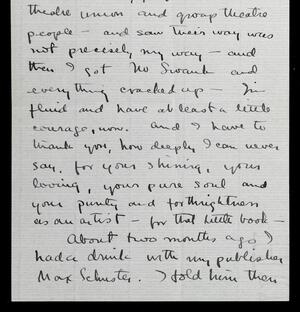 theatre union and group theatre
people – and saw their way was
not precisely my way – and
then I got No Swank and
everything cracked up – I'm
fluid and have at least a little
courage, now. And I have to
thank you, how deeply I can never
say, for your shining, your
loving, your pure soul and
your purity and forthrightness
as an artist – for that little book –
About two months ago I
had a drink with my publisher
Max Schuster. I told him then